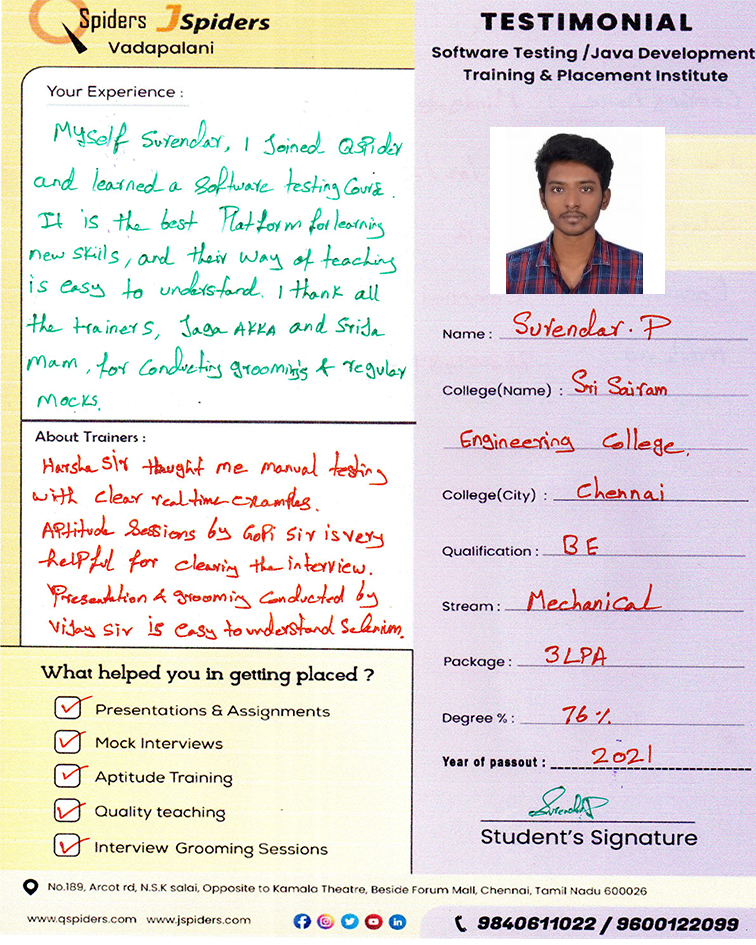 QSpiders JSpiders
Vadapalani
Your Experience :
Myself Surendar, I Joined QSpider
and learned a software testing Course.
It is the best Platform for learning
new skills, and their way of teaching
is easy to understand. I thank all
the trainers, Jaga AKKA and Srija
Mam, for conducting grooming's & regular
Mocks.
About Trainers :
Harsha Sir thaught me manual testing
with clear real time examples.
Aptitude Sessions by Gopi Sir is very
helpful for clearing the interview.
Presentation & grooming conducted by
Vijay Sir is easy to understand Selenium.
What helped you in getting placed ?
Presentations & Assignments
Mock Interviews
Aptitude Training
Quality teaching
Interview Grooming Sessions
TESTIMONIAL
Software Testing /Java Development
Training & Placement Institute
Name : Surendar. P
College(Name) : Sri Sairam
Engineering College.
College(City) : Chennai
Qualification : BE
Stream : Mechanical
Package : 3 LPA
Degree % : 76 %
Year of passout : 2021
Surendar P
Student's Signature
No.189, Arcot rd, N.S.K salai, Opposite to Kamala Theatre, Beside Forum Mall, Chennai, Tamil Nadu 600026
www.qspiders.com www.jspiders.com
9840611022 / 9600122099